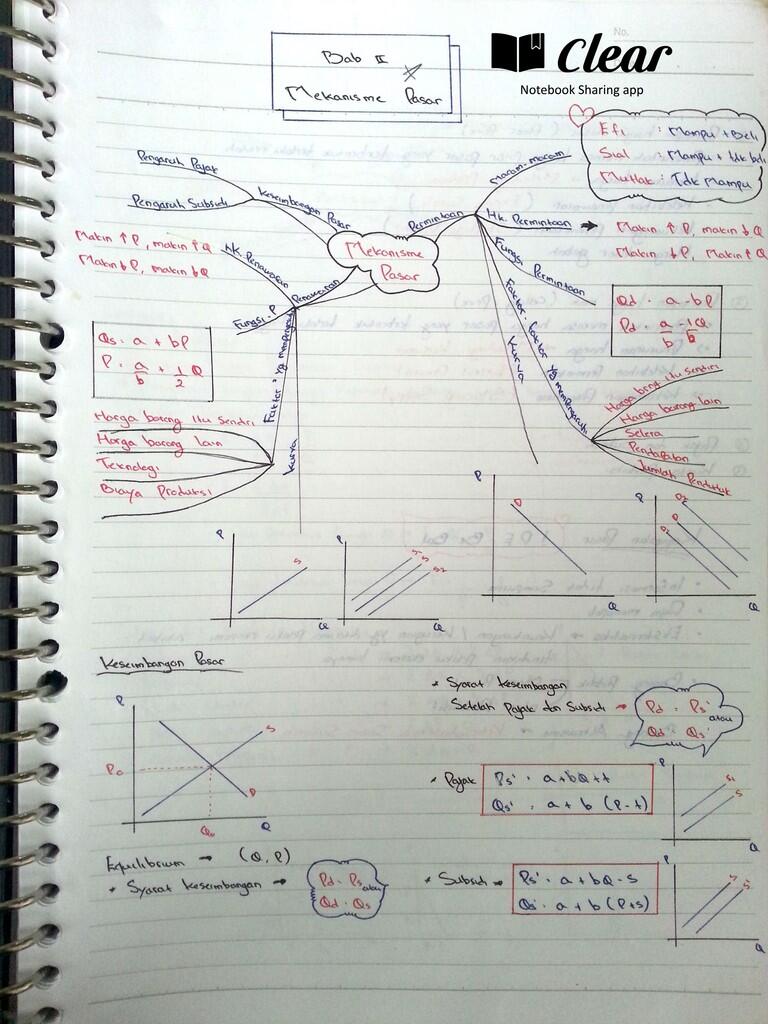 No.
Clear
Notebook Sharing app
Bab II
Mekanisme Pasar
Efi : Mampu + Beli
Sial : Mampu + tdk beli
Mutlak : Tdk Mampu
Mekanisme
Pasar
Keseimbangan Pasar
Pengaruh Pajak
Pengaruh Subsidi
Permintaan
Macam-macam
Hk. Permintaan →
Makin ↑ P, makin ↓ Q
Makin ↓ P, Makin ↑ Q
Fungsi Permintaan
Qd = a - bP
Pd = a/b - 1/b Q
Faktor-faktor yg mempengaruhi
Harga brng itu sendiri
Harga barang lain
Selera
Pendapatan
Jumlah Penduduk
Kurva
P
D
Q
P
D2
D
Q
Penawaran
Hk. Penawaran
Makin ↑ P, makin ↑ Q
Makin ↓ P, makin ↓ Q
Fungsi-P
Qs = a + bP
P = a/b + 1/2 Q
Faktor" yg mempengaruhi
Harga barang itu sendiri
Harga barang lain
Teknologi
Biaya Produksi
Kurva
P
S
Q
P
S
S2
Q
Keseimbangan Pasar
P
S
P0
D
Q0
Q
Equilibrium → (Q, P)
* Syarat keseimbangan →
Pd = Ps atau
Qd = Qs
* Syarat keseimbangan
Setelah Pajak dan Subsidi →
Pd = Ps' atau
Qd = Qs'
* Pajak
Ps' = a + bQ + t
Qs' = a + b (P - t)
P
S1
S
Q
* Subsidi →
Ps' = a + bQ - s
Qs' = a + b (P + s)
P
S
S'
Q